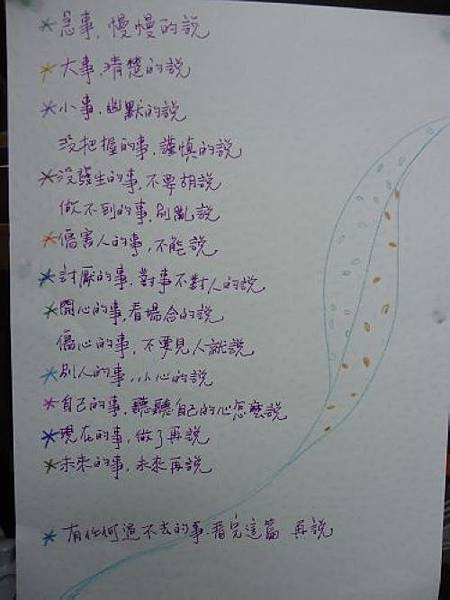 *急事，慢慢的說
*大事，清楚的說
*小事，幽默的說
沒把握的事，謹慎的說
*沒發生的事，不要胡說
做不到的事，別亂說
*傷害人的事，不能說
*討厭的事，對事不對人的說
*開心的事，看場合的說
傷心的事，不要見人就說
*別人的事，小心的說
*自己的事，聽聽自己的心怎麼說
*現在的事，做了再說
*未來的事，未來再說
*有任何過不去的事，看完這篇 再說